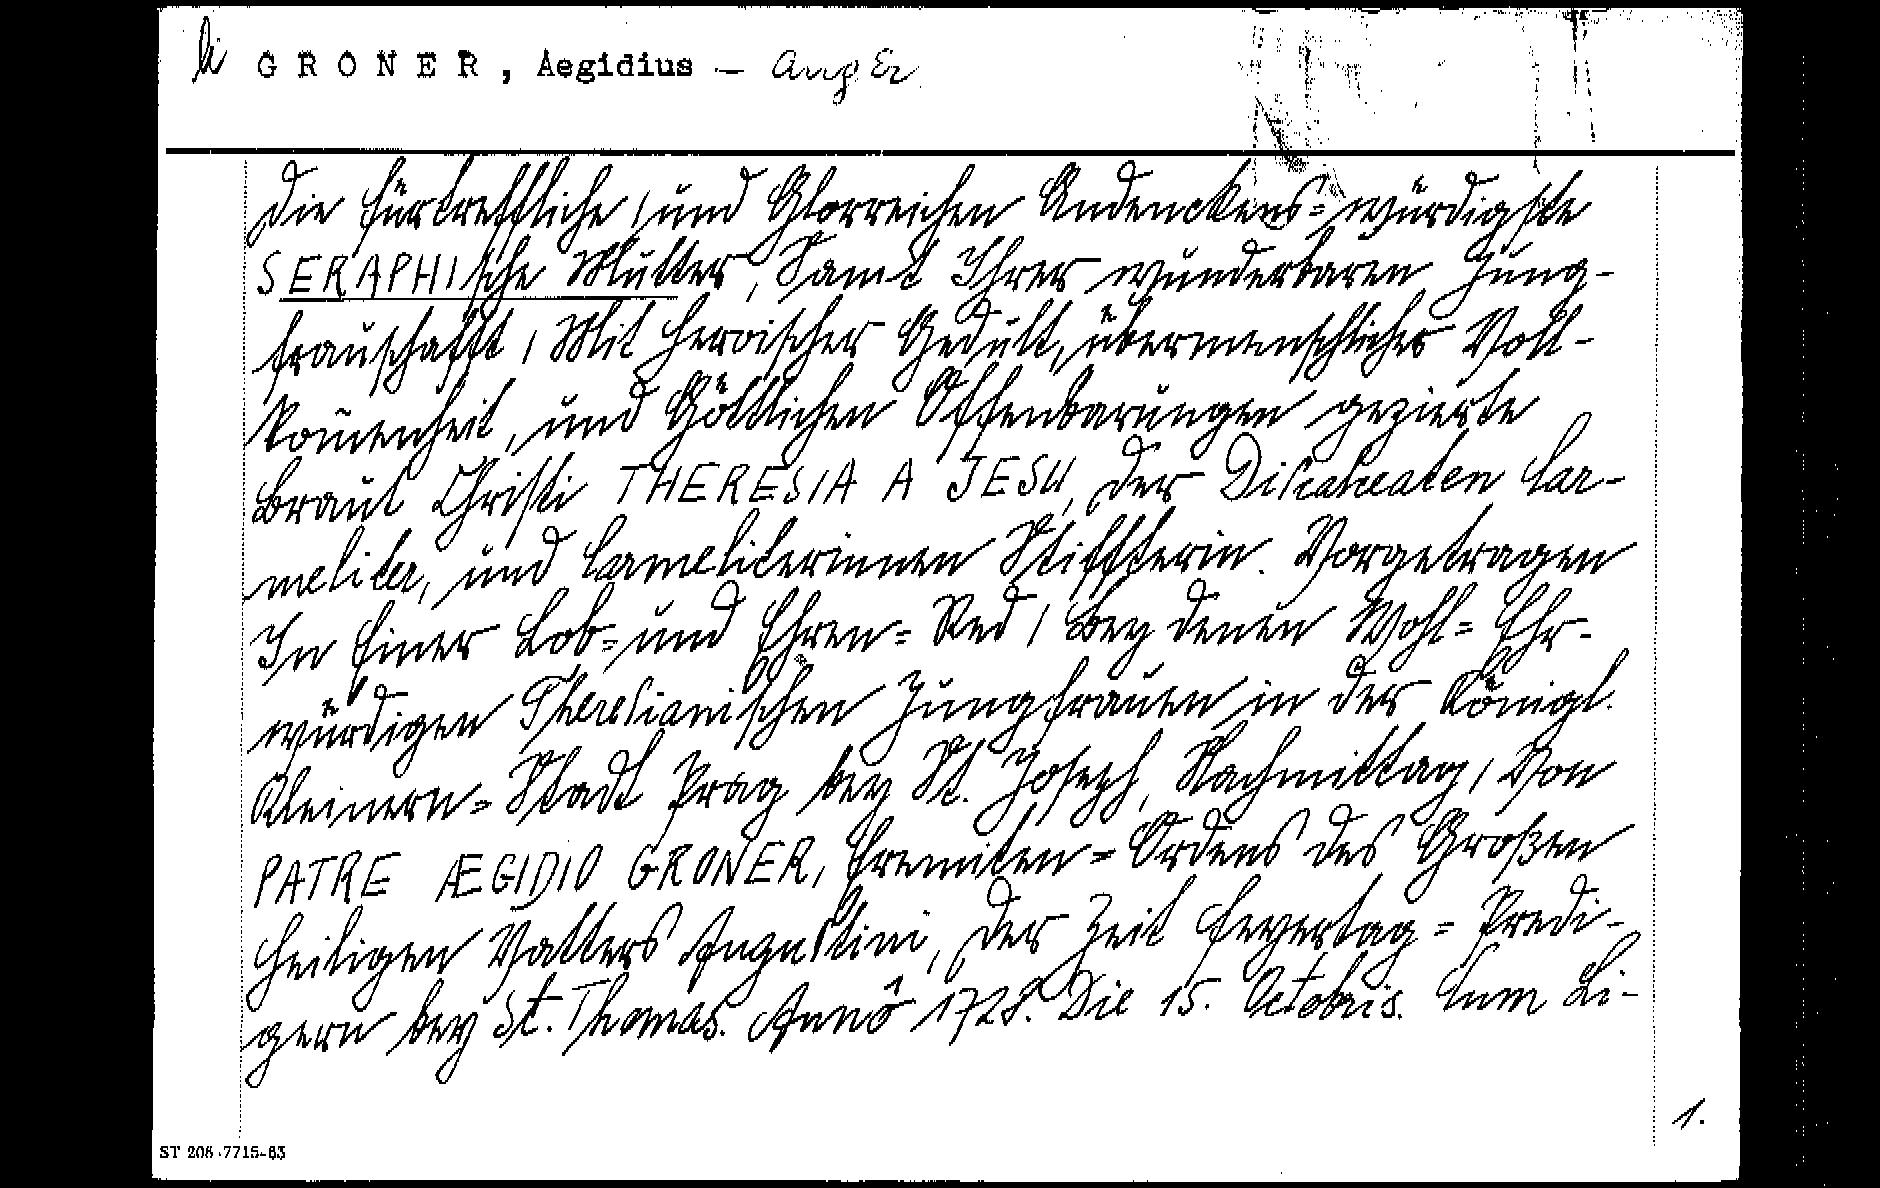 li GRONER, Aegidius – AugEr
Die fürtreffliche / und Glorreichen Andenckens= würdigste
SERAPHIsche Mutter, Samt Ihrer wunderbaren Jung-
frauschafft / Mit heroischer Gedult, übermenschlicher Voll-
kom̄enheit, und Göttlichen Offenbarungen gezierte
Braut Christi THERESIA A JESU, der Discalceaten Car-
meliter, und Carmeliterinnen Stiffterin. Vorgetragen
In Einer Lob= und Ehren= Red / Bey denen Wohl= Ehr-
würdigen Theresianischen Jungfrauen in der Königl.
Kleinern= Stadt Prag bey St. Joseph, Nachmittag / Von
PATRE ÆGIDIO GRONER, Eremiten= Ordens des Großen
Heiligen Vatters Augustini, der Zeit Feyertag= Predi-
gern bey St. Thomas. Annô 1728. Die 15. Octobris. Cum Li-
1.
ST 206 · 7715-63